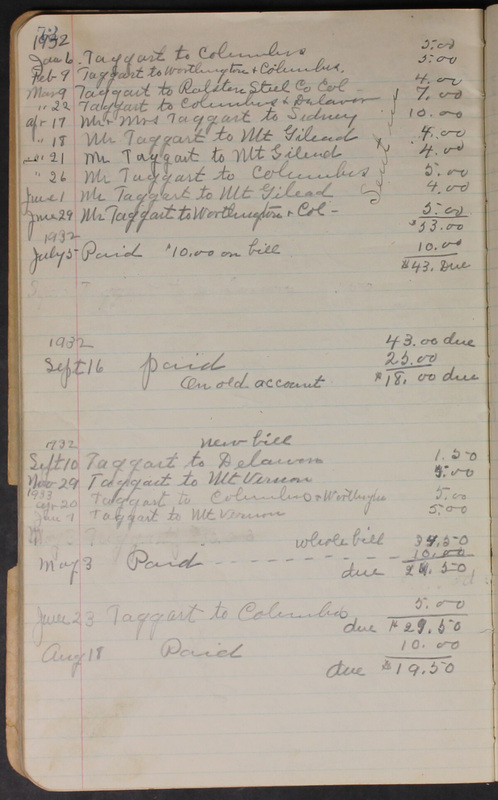 1932
Jan 6. Taggart to Columbus 5.00
Feb 9 Taggart to Worthington & Columbus. 5.00
Mar 9 Taggart to Ralston Steel Co Col - 4.00
" 22 Taggart to Columbus & Delaware 7.00
apr 17 Mr & Mrs Taggart to Sidney 10.00
" 18 Mr Taggart to Mt Gilead 4.00
" 21 Mr Taggart to Mt Gilead 4.00
" 26 Mr Taggart to Columbus 5.00
June 1 Mr Taggart to Mt Gilead 4.00
June 29 Mr Taggart to Worthington & Col - 5.00
$53.00
Sent out
1932
July 5 Paid $10.00 on bill 10.00
$43. Due
1932 43.00 due
Sept 16 paid 25.00
On old account $18.00 due
1932 new bill
Sept 10 Taggart to Delaware 1.50
Nov 29 Taggart to Mt Vernon 5.00
1933
apr 20 Taggart to Columbus & Worthington 5.00
Jan 7 Taggart to Mt Vernon 5.00
whole bill 34.50
May 3 Paid - - - - - 10.00
due 24.50
June 23 Taggart to Columbus 5.00
due $29.50
Aug 18 Paid 10.00
due $19.50